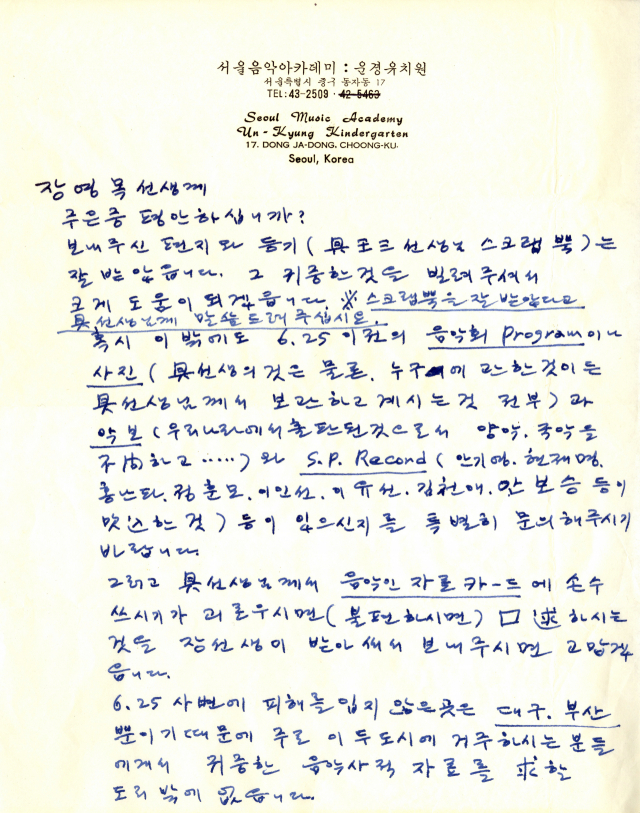 서울음악아카데미 : 운경유치원
서울특별시 중구 동자동 17
TEL: 43-2509 · 42-5463
Seoul Music Academy
Un-Kyung Kindergarten
17. DONG JA-DONG. CHOONG-KU.
Seoul, Korea
장영목선생께
주은중 평안하십니까?
보내주신 편지와 등기(具포크선생님 스크랩뿍)는
잘 받았읍니다. 그 귀중한것을 빌려주셔서
크게 도움이 되겠읍니다. ※ 스크랩뿍을 잘 받았다고
具선생님께 말씀드려 주십시오.
혹시 이 밖에도 6.25 이전의 음악회 Program이나
사진(具선생의 것은 물론, 누구에 관한것이든
具선생님께서 보관하고 계시는것 전부)과
악보(우리나라에서출판된것으로서 양악, 국악을
不問하고 .....)와 S.P. Record(안기영. 현제명.
홍난파. 정훈모. 이인선. 이유선. 김천애. 안보승 등이
吹込한 것) 등이 있으신지를 특별히 문의해주시기
바랍니다.
그리고 具선생님께서 음악인 자료카-드에 손수
쓰시기가 괴로우시면(불편하시면) 口述하시는
것을 장선생이 받아써서 보내주시면 고맙겠
읍니다.
6.25 사변에 피해를입지 않은곳은 대구. 부산
뿐이기때문에 주로 이 두도시에 거주하시는 분들
에게서 귀중한 음악사적 자료를 求할
도리 밖에 없읍니다.